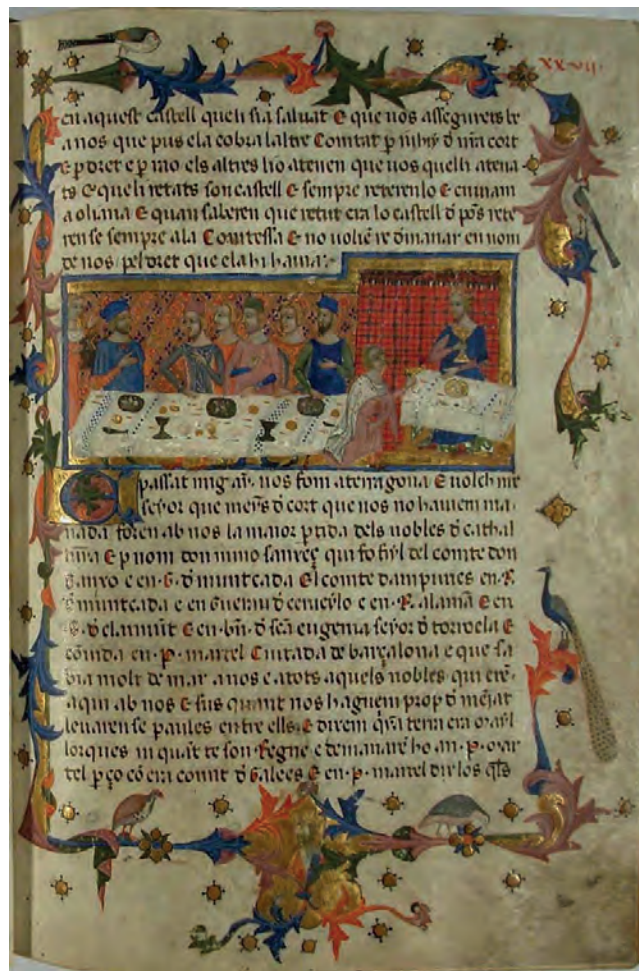 xxvij.
en aquest castell queli sia saluat E que uos assegurets be
a nos que pus ela cobra laltre Comtat p iuhij d nra cort
E p dret e p rao els altres ho atenen que uos quelli atena
ts E que li retats son castell E sempre reterenlo E enuiam
a oliana E quan saberen que retut era lo castell d pons rete
ren se sempre ala Comtessa E no uolie re dmanar en nom
de nos pel dret que ela hi hauia
E passat mig any nos fom a terragona E uolch nre
seyor que meyns d cort que nos no hauiem ma
nada foren ab nos la maior ptida dels nobles d cathal
unya E p nom don nuno sanxeç qui fo fiyl del comte don
sanxo e en .G. d muntcada El comte dampuries en .R.
d muntcada e en Guerau d ceruylo e en .R. alama E en
.G. d claramunt E en bn. d sca eugenia seyor d torroela E
couida en .P. martel Ciutada de barçalona e que sa
bia molt de mar a nos e a tots aquels nobles qui eren
aqui ab nos E sus quant nos haguem prop d meiat
leuaren se paules entre ells E diren qna terra era mayl
lorques ni quat te son Regne e demanare ho an .P. mar
tel p ço co era comit d Galees E en .P. martel dix los qls